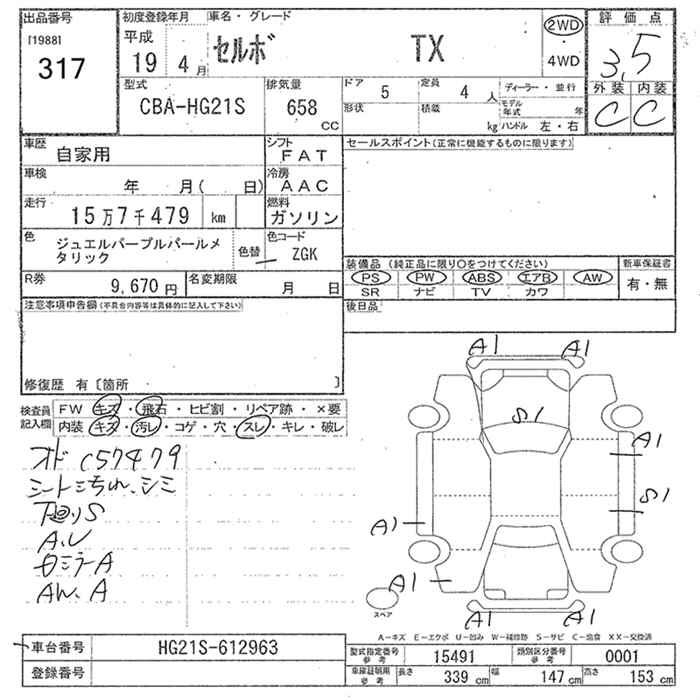 出品番号
[1988]
317
初度登録年月
平成
19
4
月
車名・グレード
セルボ
TX
2WD
4WD
評価点
3,5
外装
内装
C
C
型式
CBA-HG21S
排気量
658
cc
ドア
5
定員
4
人
形状
積載
kg
ディーラー・並行
モデル
年式
年
ハンドル 左・右
車歴
自家用
シフト
FAT
車検
年 月( 日)
冷房
AAC
走行
15万7千479 km
燃料
ガソリン
色
ジュエルパープルパールメ
タリック
色替
色コード
ZGK
R券
9,670円
名変期限
月 日
セールスポイント(正常に機能するものに限ります)
装備品 (純正品に限り○をつけてください)
PS PW ABS エアB AW
SR ナビ TV カワ
新車保証書
有・無
後日品
注意事項申告欄(不具合内容等は具体的に記入して下さい)
修復歴 有〔箇所 〕
検査員
記入欄
FW キズ・飛石・ヒビ割・リペア跡・×要
内装 キズ・汚レ・コゲ・穴・スレ・キレ・破レ
C57479
シミ
下廻りS
A.U
A
AW.A
A1
A1
S1
A1
S1
A1
A1
A1
A1
スペア
A-キズ E-エクボ U-凹み W-補修跡 S-サビ C-腐食 XX-交換済
車台番号
HG21S-612963
登録番号
型式指定番号
参考
15491
類別区分番号
参考
0001
車庫証明用
参考
長さ
339 cm
幅
147 cm
高さ
153 cm